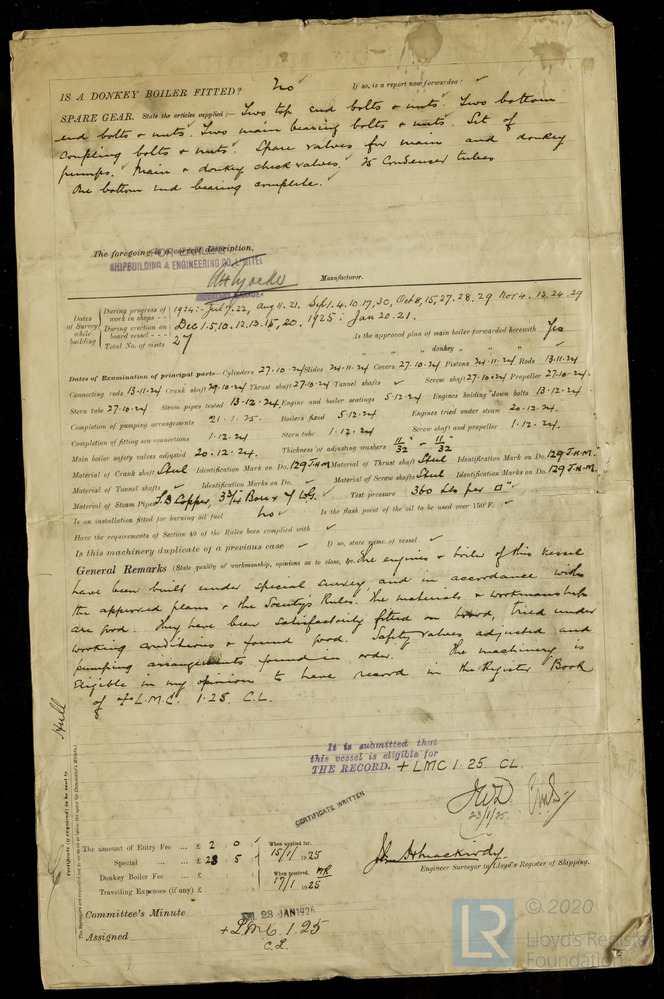 IS A DONKEY BOILER FITTED? No If so, is a report now forwarded? ✓
SPARE GEAR. State the articles supplied:— Two top end bolts & nuts. Two bottom
end bolts & nuts. Two main bearing bolts & nuts. Set of
coupling bolts & nuts. Spare valves for main and donkey
pumps. Main & donkey check valves. 25 Condenser tubes
One bottom end bearing complete.
The foregoing is a correct description,
SHIPBUILDING & ENGINEERING CO. LIMITED
Manufacturer.
Dates of Survey while building
During progress of work in shops - - 1924:- July 7.22, Aug 11.21. Sept 1.4.10.17.30, Oct 8,15,27.28.29 Nov 4. 13.24.29
During erection on board vessel - - - Dec 1.5.10.12.13.15.20. 1925: Jan 20.21.
Total No. of visits 27 Is the approved plan of main boiler forwarded herewith Yes
" " " donkey " " "
Dates of Examination of principal parts—Cylinders 27.10.24 Slides 24.11.24 Covers 27.10.24 Pistons 24.11.24 Rods 13.11.24
Connecting rods 13.11.24 Crank shaft 29.10.24 Thrust shaft 27.10.24 Tunnel shafts ✓ Screw shaft 27.10.24 Propeller 27.10.24
Stern tube 27.10.24 Steam pipes tested 13.12.24 Engine and boiler seatings 5.12.24 Engines holding down bolts 13.12.24
Completion of pumping arrangements 21.1.25. Boilers fixed 5.12.24 Engines tried under steam 20.12.24.
Completion of fitting sea connections 1.12.24 Stern tube 1.12.24 Screw shaft and propeller 1.12.24.
Main boiler safety valves adjusted 20.12.24. Thickness of adjusting washers 11/32 - 11/32
Material of Crank shaft Steel Identification Mark on Do. 129 J.H.M. Material of Thrust shaft Steel Identification Mark on Do. 129 J.H.M.
Material of Tunnel shafts ✓ Identification Marks on Do. ✓ Material of Screw shafts Steel Identification Marks on Do. 129 J.H.M.
Material of Steam Pipes S.D Copper, 3 3/4 Bore x 7 W.G. Test pressure 360 lbs per □"
Is an installation fitted for burning oil fuel No ✓ Is the flash point of the oil to be used over 150°F. ✓
Have the requirements of Section 49 of the Rules been complied with ✓
Is this machinery duplicate of a previous case ✓ If so, state name of vessel ✓
General Remarks (State quality of workmanship, opinions as to class, &c. The engines & boiler of this vessel
have been built under special survey and in accordance with
the approved plans & the Society's Rules. The materials & workmanship
are good. They have been satisfactorily fitted on board, tried under
working conditions & found good. Safety valves adjusted and
pumping arrangements found in order. The machinery is
eligible in my opinion to have record in the Register Book
of + L.M.C. 1.25. C.L.
Hull
It is submitted that
this vessel is eligible for
THE RECORD. + LMC 1.25. CL.
23/1/25.
CERTIFICATE WRITTEN
The amount of Entry Fee ... £ 2 : 0 : When applied for,
Special ... ... £ 23 : 5 : 15/1/1925
Donkey Boiler Fee ... £ : : When received,
Travelling Expenses (if any) £ : : 17/1 1925
Engineer Surveyor to Lloyd's Register of Shipping.
Committee's Minute FRI. 23 JAN 1925
Assigned + L.M.C. 1.25
C.L.
LR © 2020
Lloyd's Register
Foundation